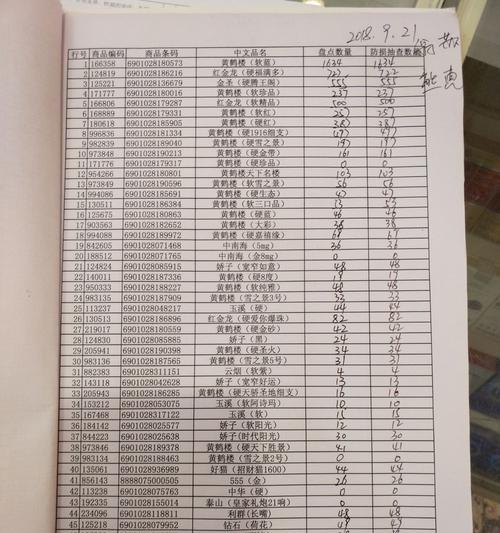 2018.9.21
行号 商品编码 商品条码 中文品名 盘点数量 防损抽查数量
1 166358 6901028180573 黄鹤楼（软蓝） 1634 1634
2 124819 6901028186216 红金龙（硬福满多） 922
3 125221 6901028136679 金圣（硬腾王阁） 555 555
4 171777 6901028180016 黄鹤楼（软珍品） 237 237
5 166806 6901028179287 红金龙（软精品） 500 500
6 168251 6901028189187 黄鹤楼（软红） 257
7 180618 6901028186315 黄鹤楼（硬红） 287 287
8 996836 6901028181334 黄鹤楼（硬1916细支） 497
9 982839 6901028189040 黄鹤楼（硬雪之景） 197 197
10 973848 6901028190398 黄鹤楼（硬金带） 161 161
11 171776 6901028179317 黄鹤楼（硬珍品） 0 0
12 954266 6901028180801 黄鹤楼天下名楼 103 103
13 973849 6901028190596 黄鹤楼（软雪之景） 56 56
14 994086 6901028185691 黄鹤楼（硬生态） 47
15 130511 6901028189384 黄鹤楼（软三口品） 53
16 125675 6901028180863 黄鹤楼（硬蓝） 46 46
17 903652 6901028181262 黄鹤楼（大彩） 38
18 994089 6901028188992 黄鹤楼（硬嘉禧缘） 67 67
19 842605 6901028071468 中南海（5mg） 26 26
20 188512 6901028071765 中南海（金8mg） 0 0
21 124824 6901028085915 娇子（宽窄如意） 48 48
22 140011 6901028187336 黄鹤楼（硬8度） 19 19
23 950333 6901028188227 黄鹤楼（软纯雅） 48 48
24 983135 6901028187909 黄鹤楼（雪之景3号） 33 33
25 113237 6901028048217 玉溪（硬） 44 44
26 130513 6901028186896 红金龙（硬爱你爆珠） 82 82
27 219017 6901028180559 黄鹤楼（硬金砂） 42 42
28 124830 6901028085885 娇子（黑） 24 24
29 205941 6901028190398 黄鹤楼（硬圣火） 34 34
30 983136 6901028187565 黄鹤楼（雪之景5号） 31 31
31 882383 6901028341151 云烟（软紫） 4 4
32 143118 6901028042628 娇子（宽窄好运） 13 13
33 205943 6901028186285 黄鹤楼（硬天骄圣地细支） 16 16
34 153212 6901028053075 玉溪（软阿诗玛） 10 10
35 167468 6901028317122 玉溪（软） 15 15
36 184142 6901028025577 娇子（软阳光） 12 12
37 844223 6901028025638 娇子（时代阳光） 30 30
38 973846 6901028189378 黄鹤楼（硬天下胜景） 41 41
39 983134 6901028184663 黄鹤楼（雪之景2号） 0 0
40 135061 6901028936989 好猫（招财猫1600） 44 44
41 856143 8888075000505 555（金） 26 26
42 113238 6901028075763 中华（硬） 0 0
43 192335 6901028155014 泰山（皇家礼炮21响） 0 0
44 234096 6901028118811 利群（长嘴） 48 48
45 125218 6901028079952 钻石（荷花） 49 49